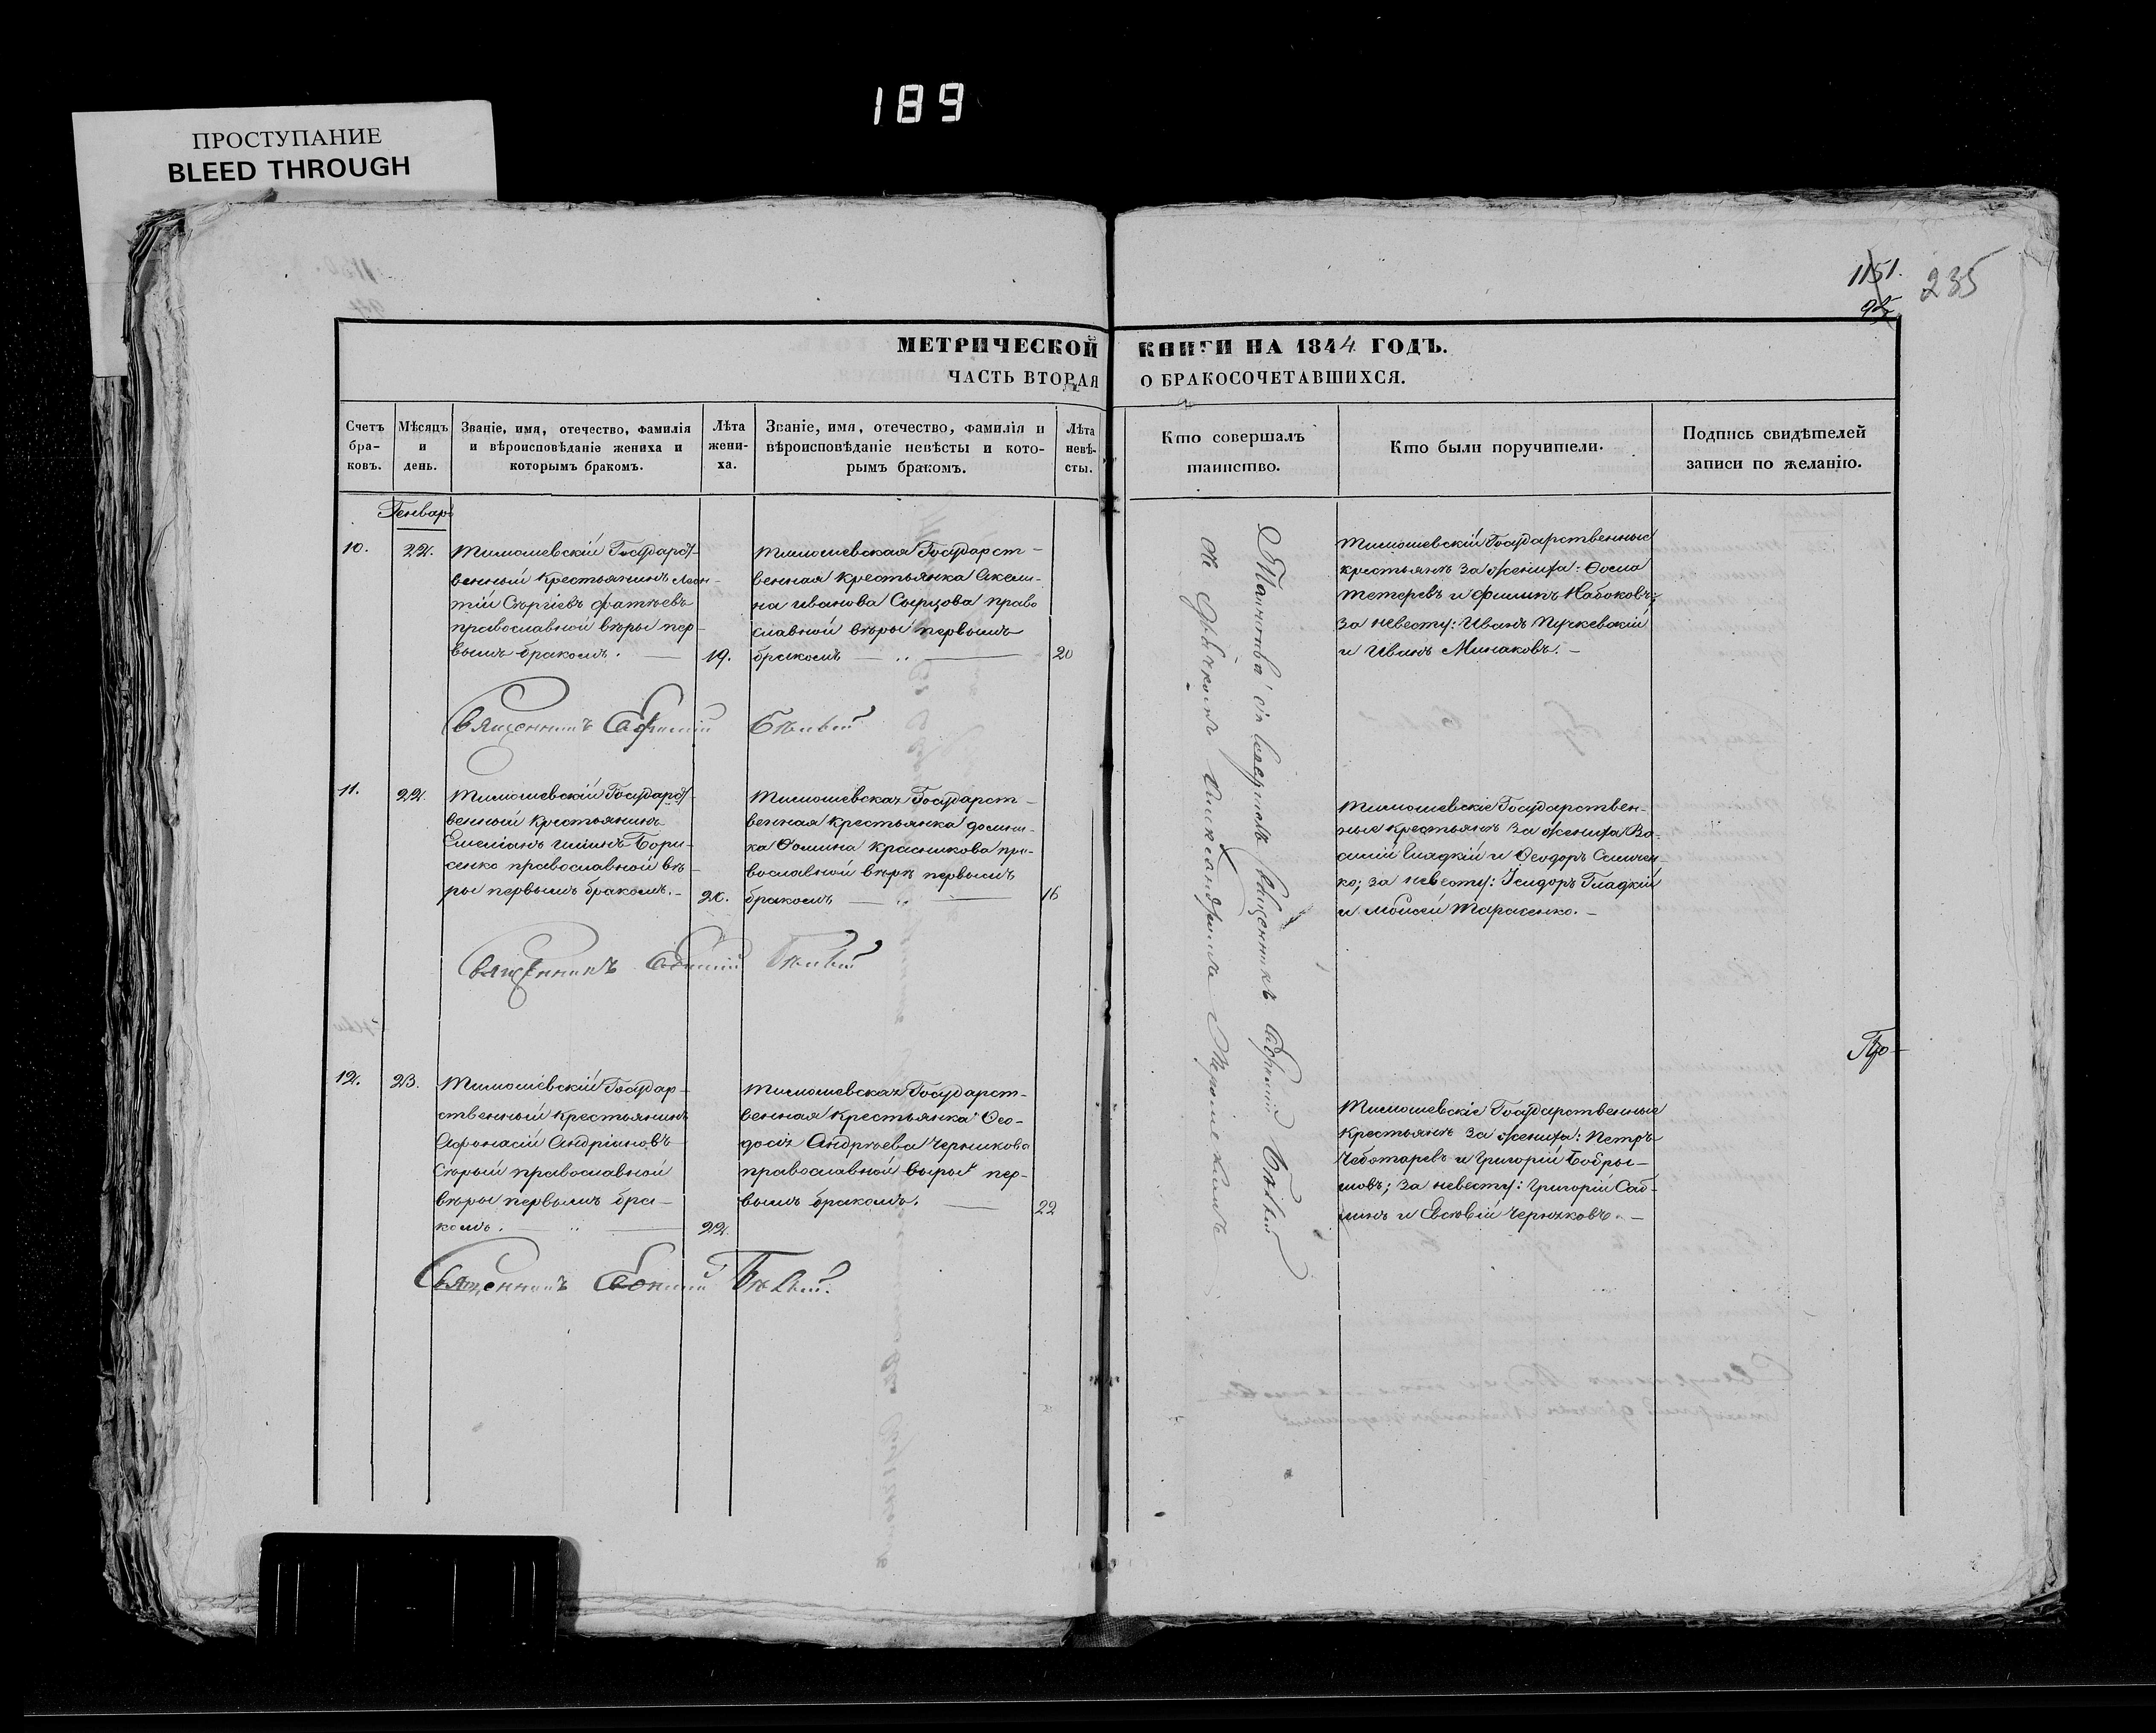 189
ПРОСТУПАНИЕ
BLEED THROUGH
1151.
95
235
МЕТРИЧЕСКОЙ КНИГИ НА 1844 ГОДЪ.
ЧАСТЬ ВТОРАЯ О БРАКОСОЧЕТАВШИХСЯ.
Счетъ бра-ковъ.
Мѣсяцъ и день.
Званіе, имя, отечество, фамилія
и вѣроисповѣданіе жениха и
которымъ бракомъ.
Лѣта жени-ха.
Званіе, имя, отечество, фамилія и
вѣроисповѣданіе невѣсты и кото-
рымъ бракомъ.
Лѣта невѣ-сты.
Кто совершалъ
таинство.
Кто были поручители.
Подпись свидѣтелей
записи по желанію.
Генварь
10.
22.
Тимошевскій Государст-
венный крестьянинъ Леон-
тій Сѣргіевъ Фатѣевъ
православной вѣры пер-
вымъ бракомъ.
19.
Тимошевская Государст-
венная крестьянка Акели-
на Иванова Сырцова право
славной вѣры первымъ
бракомъ
20
Тимошевскій Государственные
крестьянѣ за жениха: Фома
Тетеревъ и Филипъ Набоковъ;
за невесту: Иванъ Пучкевскій
и Иванъ Минаковъ.
Священникъ Евфимій Бѣлый
11.
22.
Тимошевскій Государст-
венный крестьянинъ
Емеліанъ Бори-
сенко православной вѣ-
ры первымъ бракомъ.
20.
Тимошевская Государст-
венная крестьянка Домни-
ка Фомина Красникова пра-
вославной вѣрѣ первымъ
бракомъ
16
Тимошевскіе Государствен-
ные крестьянѣ за жениха Ва-
силій Гладкій и Феодоръ
ко; за невесту: Исидоръ Гладкій
и Моисей Тарасенко.
Священникъ Евфимій Бѣлый
12.
23.
Тимошевскій Государ-
ственный крестьянинъ
Афонасій Андріановъ
Сѣрый православной
вѣры первымъ бра-
комъ.
22.
Тимошевская Государст-
венная крестьянка Фео-
досія Андрѣева Черникова
православной вѣры пер-
вымъ бракомъ.
22
Тимошевскіе Государственные
крестьянѣ за жениха: Петръ
Чеботаревъ и Григорій Бобры-
шовъ; за невесту: Григорій Саб-
линъ и Евсѣвій Черняковъ.
Священникъ Евфимій Бѣлый.
Таинства сіи совершалъ Священникъ Евфимій Бѣлый
съ Дьячкомъ
Про-